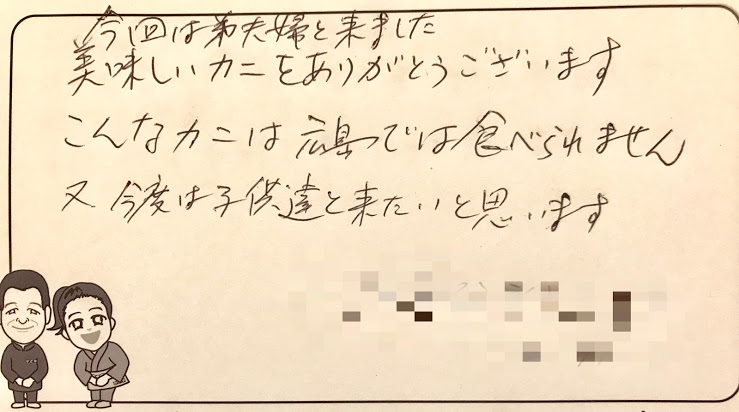 今回は弟夫婦と来ました
美味しいカニをありがとうございます
こんなカニは広島では食べられません
又今度は子供達と来たいと思います